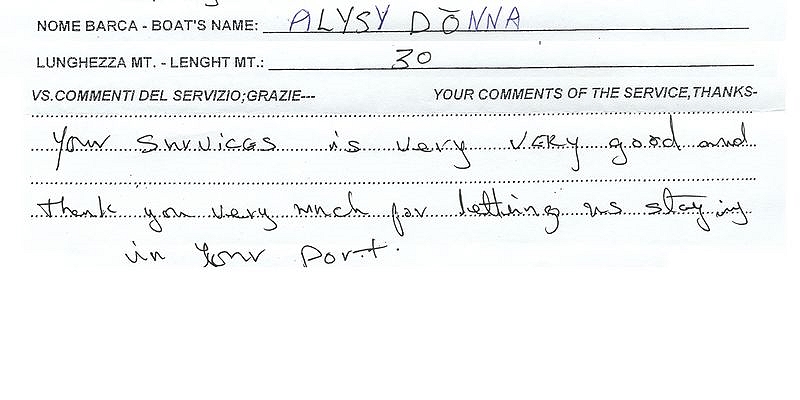 NOME BARCA - BOAT'S NAME: ALYSY DŌNNA
LUNGHEZZA MT. - LENGHT MT.: 30
VS.COMMENTI DEL SERVIZIO;GRAZIE--- YOUR COMMENTS OF THE SERVICE,THANKS-
Your Survices is very VERY good and
thank you very much for letting us stay ing
in Your Port.